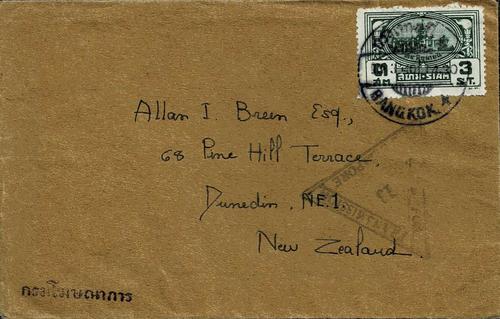 ๓
3
สต.
ST.
สยาม-SIAM
BANGKOK. 4
Allan I. Breen Esq.,
68 Pine Hill Terrace,
Dunedin, N.E.1.
New Zealand.
13
กรมโฆษณาการ